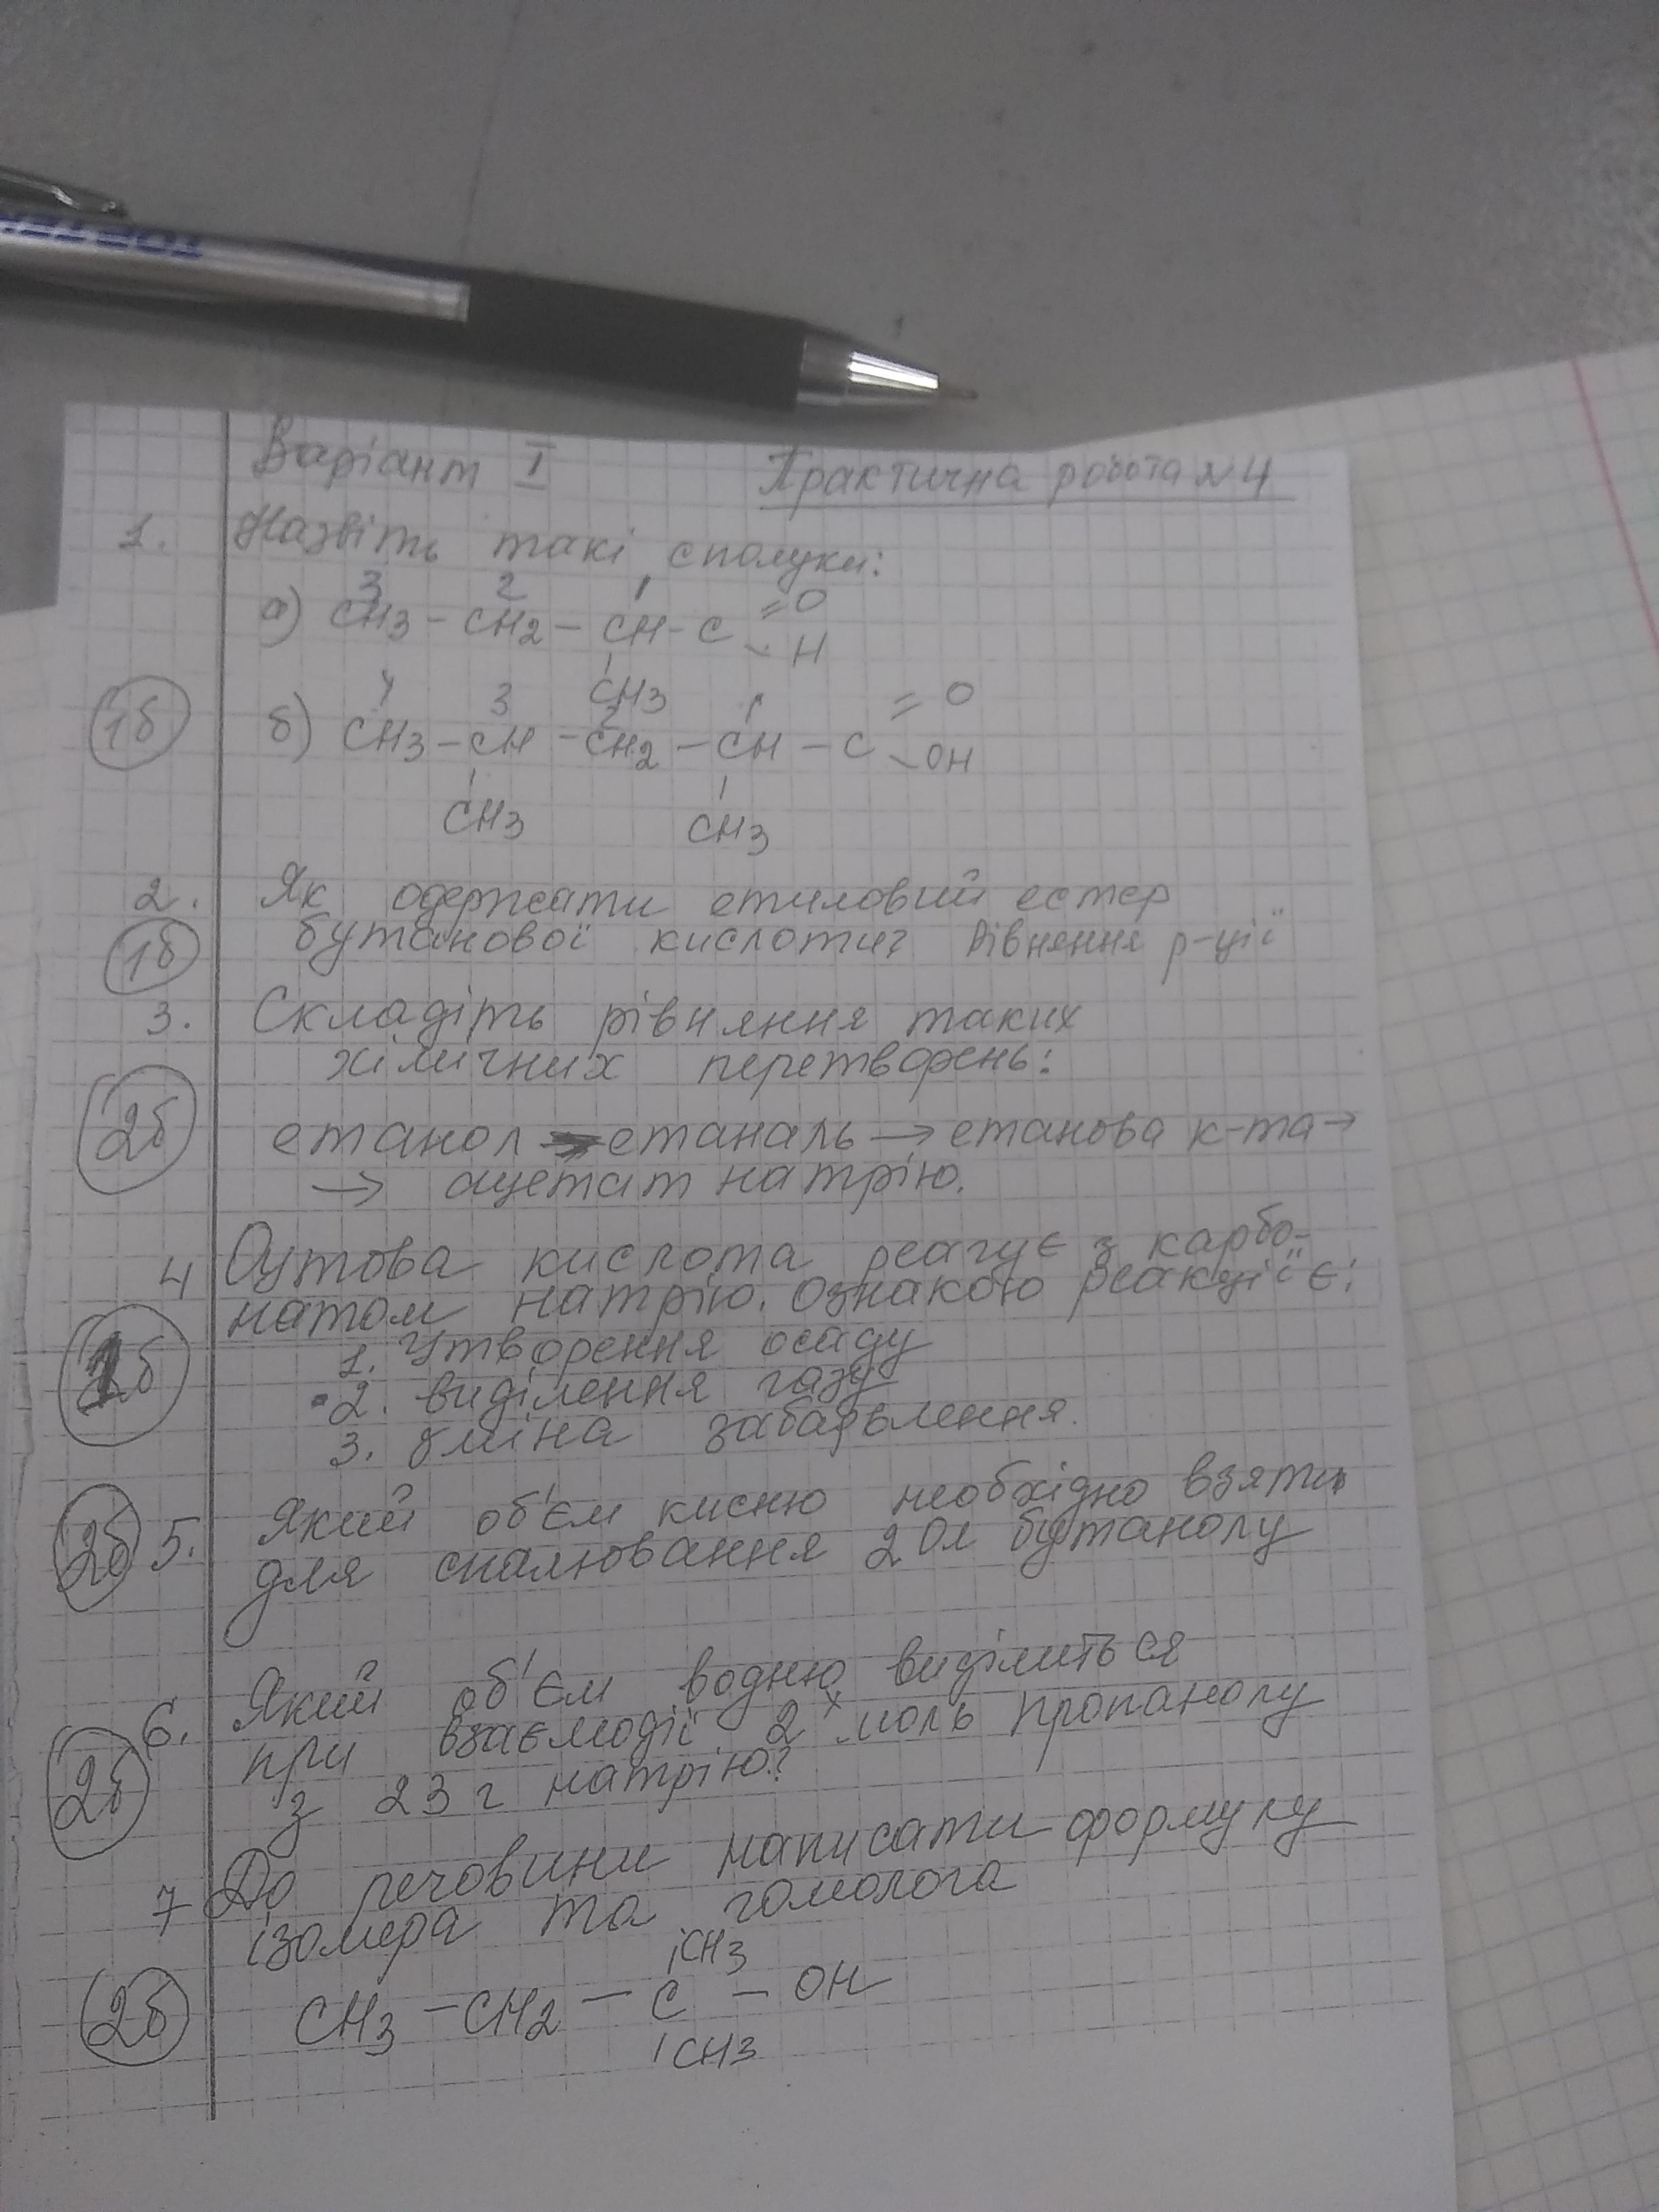 TOP TEN
Варіант I Практична робота №4
1. Назвіть такі сполуки:
3 2 1
а) CH3 - CH2 - CH - C =O - H
CH3
4 3 2 1
1б б) CH3 - CH - CH2 - CH - C =O - OH
CH3 CH3
2. Як одержати етиловий естер
1б бутанової кислоти? Рівняння р-ції
3. Складіть рівняння таких
хімічних перетворень:
2б етанол → етаналь → етанова к-та →
→ ацетат натрію.
4 Оцтова кислота реагує з карбо-
натом натрію. Ознакою реакції є:
1б 1. утворення осаду
2. виділення газу
3. зміна забарвлення.
2б 5. Який об'єм кисню необхідно взяти
для спалювання 20л бутанолу
6. Який об'єм водню виділиться
при взаємодії 2х моль пропанолу
2б з 23 г натрію?
7 До речовини написати формулу
ізомера та гомолога
CH3
2б CH3 - CH2 - C - OH
CH3